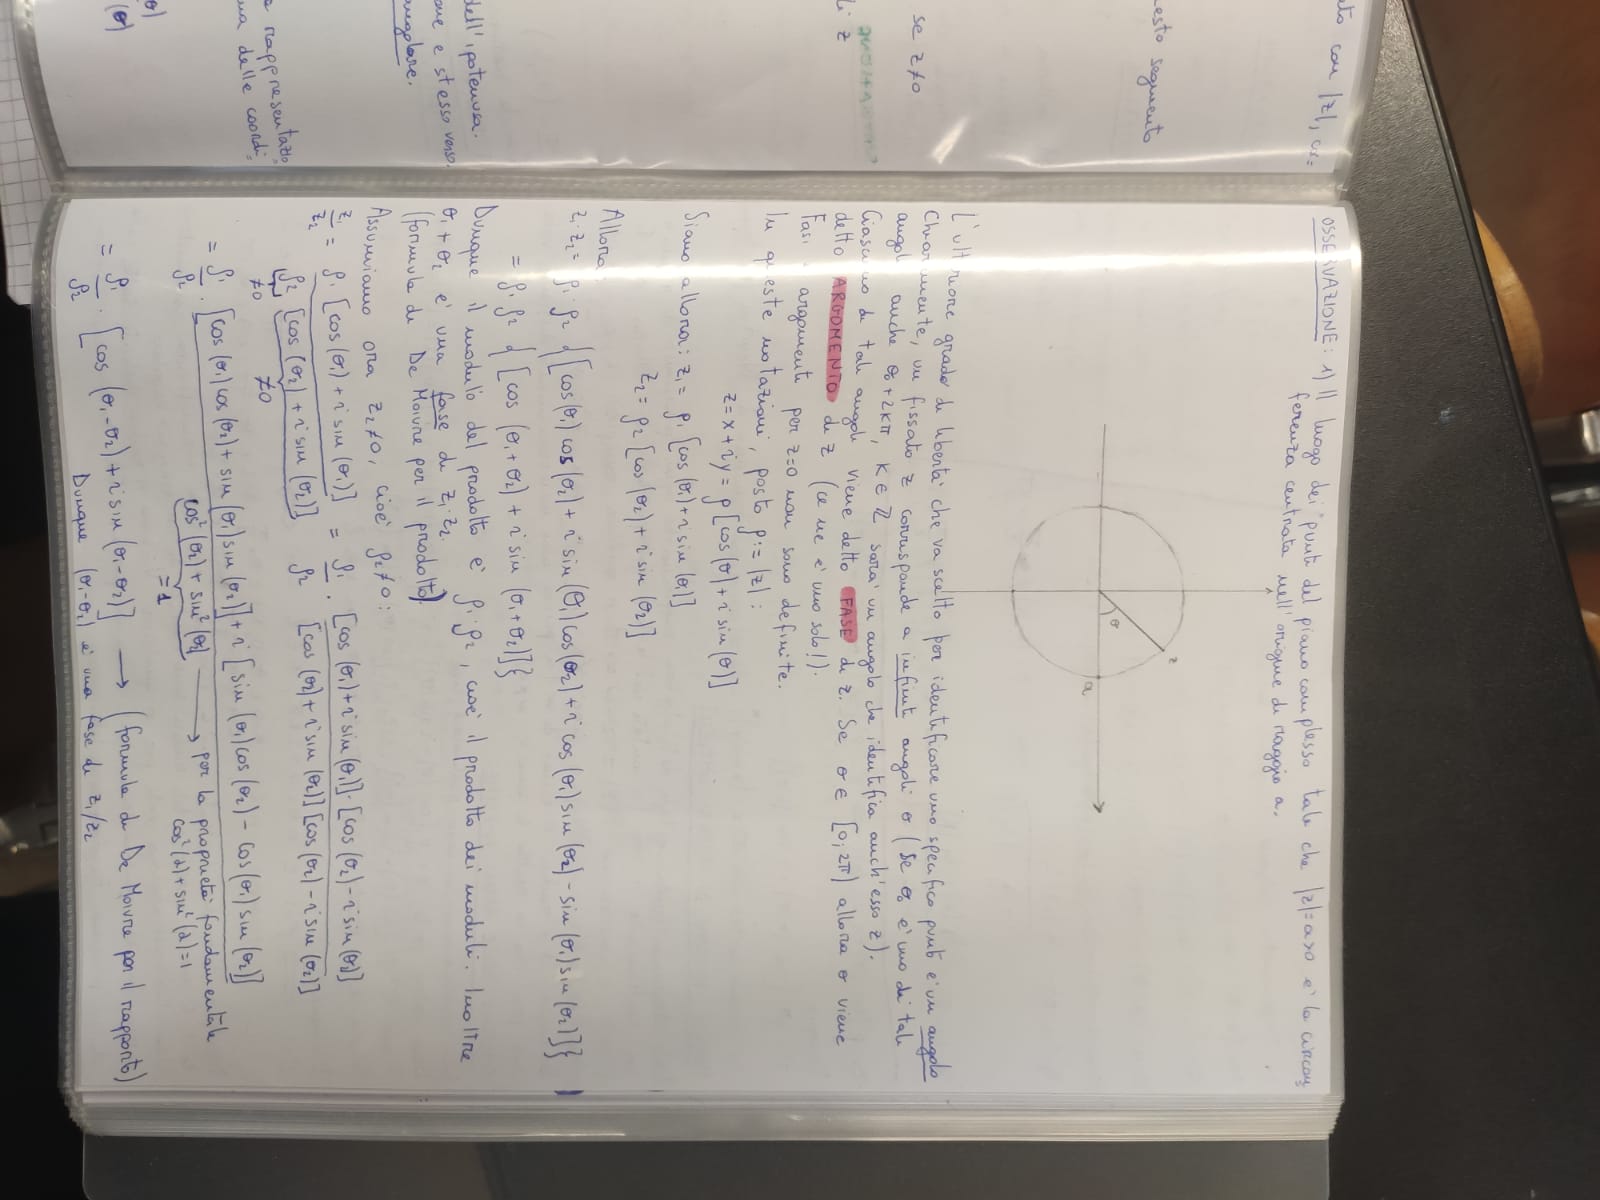 ato con |z|, cs=
esto segmento
se z≠0
di z
dell'ipotenusa.
ore e stesso verso.
angolare.
rappresentazio=
ma delle coordi=
(θ)
OSSERVAZIONE: 1) Il luogo dei punti del piano complesso tale che |z|=a>0 e' la circon=
ferenza centrata nell'origine di raggio a.
z
θ
a
L'ulteriore grado di libertà che va scelto per identificare uno specifico punto è un angolo
Chiaramente, un fissato z corrisponde a infiniti angoli θ (se θ₀ è uno di tali
angoli anche θ₀+2kπ, k∈ℤ sarà un angolo che identifica anch'esso z).
Ciascuno di tali angoli viene detto FASE di z. Se θ∈[0;2π) allora θ viene
detto ARGOMENTO di z (ce ne è uno solo!).
Fasi argomenti per z=0 non sono definite.
In queste notazioni, posto ρ:=|z|:
z=x+iy=ρ[cos(θ)+i sin(θ)]
Siano allora: z₁=ρ₁[cos(θ₁)+i sin(θ₁)]
z₂=ρ₂[cos(θ₂)+i sin(θ₂)]
Allora:
z₁·z₂=ρ₁·ρ₂{[cos(θ₁)cos(θ₂)+i sin(θ₁)cos(θ₂)+i cos(θ₁)sin(θ₂)-sin(θ₁)sin(θ₂)]}
=ρ₁·ρ₂{[cos(θ₁+θ₂)+i sin(θ₁+θ₂)]}
Dunque il modulo del prodotto è ρ₁·ρ₂, cioè il prodotto dei moduli. Inoltre
θ₁+θ₂ è una fase di z₁·z₂.
(formula di De Moivre per il prodotto)
Assumiamo ora z₂≠0, cioè ρ₂≠0:
z₁/z₂ = ρ₁[cos(θ₁)+i sin(θ₁)] / ρ₂[cos(θ₂)+i sin(θ₂)] = ρ₁/ρ₂ · [cos(θ₁)+i sin(θ₁)]·[cos(θ₂)-i sin(θ₂)] / [cos(θ₂)+i sin(θ₂)][cos(θ₂)-i sin(θ₂)]
≠0 ≠0
= ρ₁/ρ₂ · [cos(θ₁)cos(θ₂)+sin(θ₁)sin(θ₂)]+i[sin(θ₁)cos(θ₂)-cos(θ₁)sin(θ₂)] / cos²(θ₂)+sin²(θ₂) → per la proprietà fondamentale
=1 cos²(α)+sin²(α)=1
= ρ₁/ρ₂ · [cos(θ₁-θ₂)+i sin(θ₁-θ₂)] → (formula di De Moivre per il rapporto)
Dunque (θ₁-θ₂) è una fase di z₁/z₂